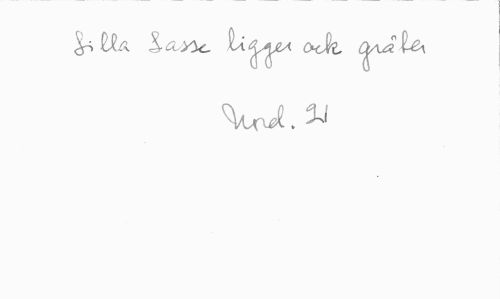 Lilla Lasse ligger ock gråter
Nord. 21